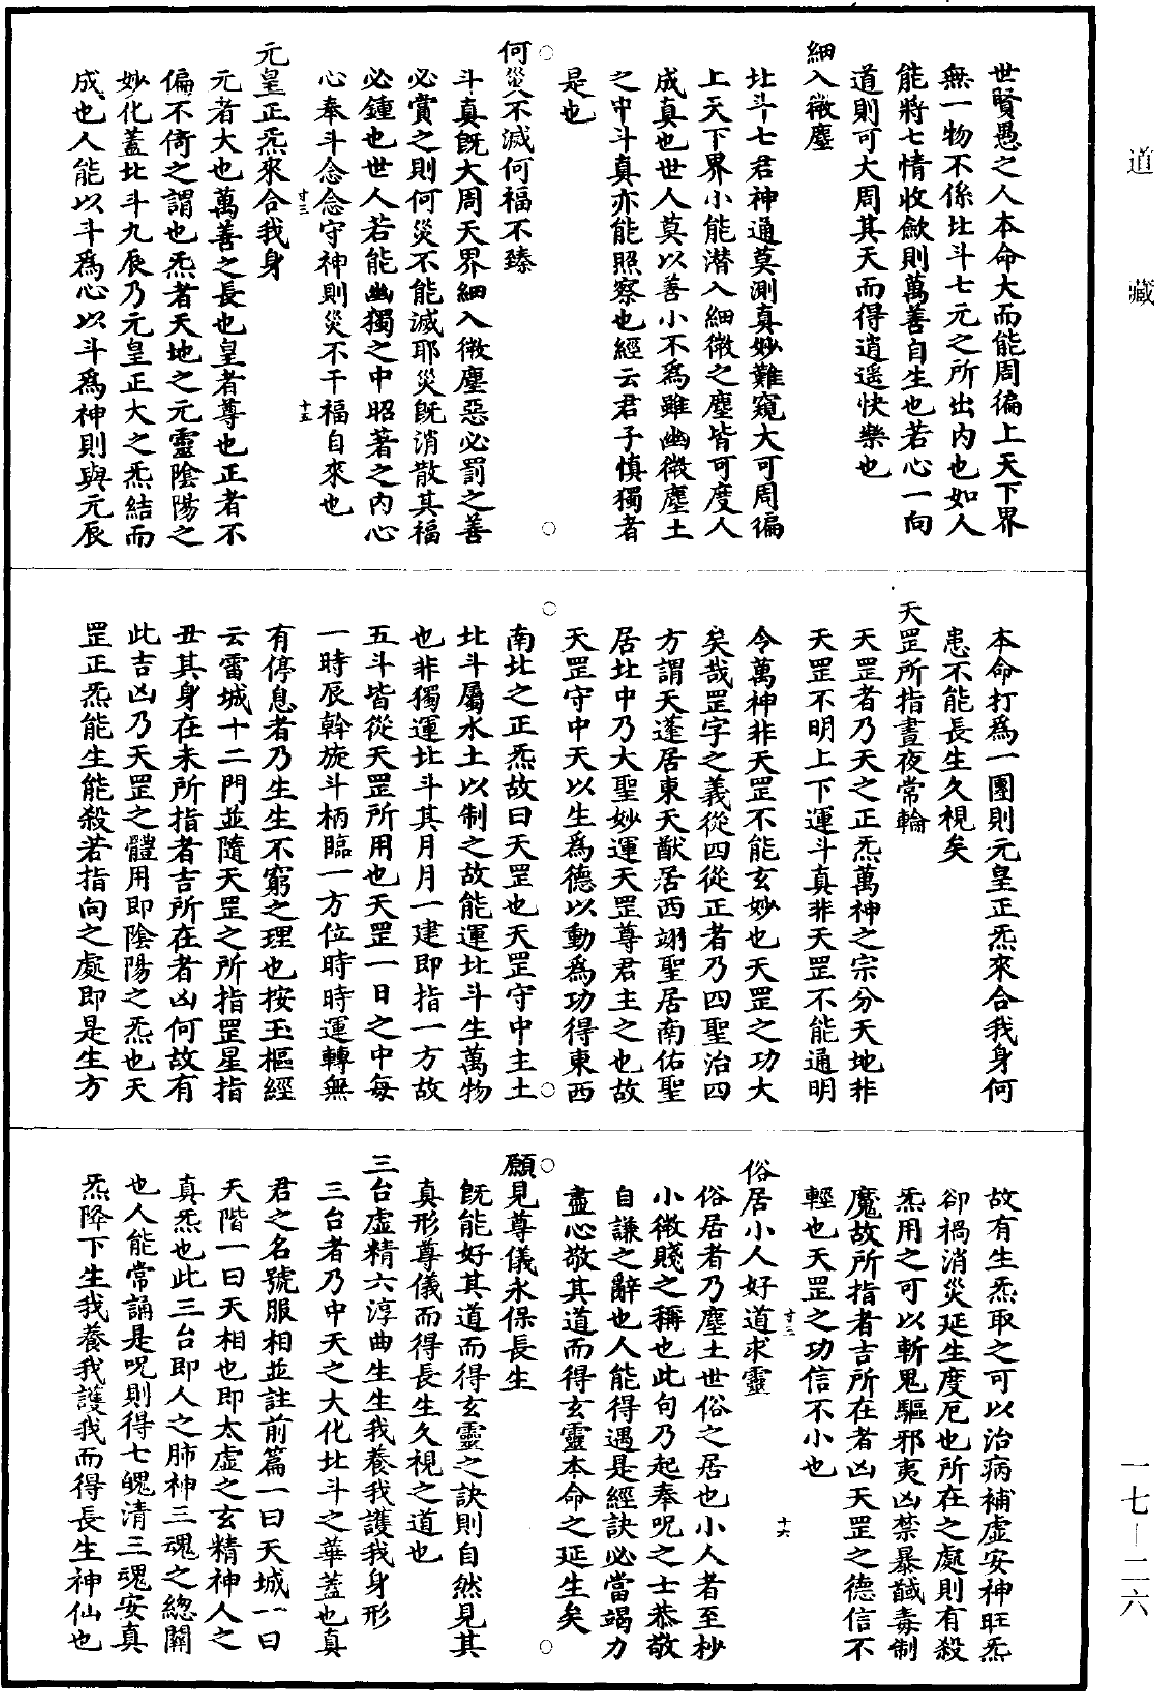 世賢愚之人本命大而能周徧上天下界
無一物不係北斗七元之所出内也如人
能將七情收歛則萬善自生也若心一向
道則可大周其天而得逍遥快樂也
細入微塵
北斗七君神通莫測真妙難窺大可周徧
上天下界小能潜入細微之塵皆可度人
成真也世人莫以善小不爲雖幽微塵土
之中斗真亦能照察也經云君子慎獨者
是也
何災不滅何福不臻
斗真旣大周天界細入微塵惡必罰之善
必賞之則何災不能滅耶災旣消散其福
必鍾也世人若能幽獨之中昭著之内心
心奉斗念念守神則災不干福自來也
元皇正炁來合我身
元者大也萬善之長也皇者尊也正者不
偏不倚之謂也炁者天地之元靈陰陽之
妙化蓋北斗九辰乃元皇正大之炁結而
成也人能以斗爲心以斗爲神則與元辰
本命打爲一團則元皇正炁來合我身何
患不能長生久視矣
天罡所指晝夜常輪
天罡者乃天之正炁萬神之宗分天地非
天罡不明上下運斗真非天罡不能通明
令萬神非天罡不能玄妙也天罡之功大
矣哉罡字之義從四從正者乃四聖治四
方謂天蓬居東天猷居西翊聖居南佑聖
居北中乃大聖妙運天罡尊君主之也故
天罡守中天以生爲德以動爲功得東西
南北之正炁故曰天罡也天罡守中主土
北斗屬水土以制之故能運北斗生萬物
也非獨運北斗其月月一建即指一方故
五斗皆從天罡所用也天罡一日之中每
一時辰斡旋斗柄臨一方位時時運轉無
有停息者乃生生不窮之理也按玉樞經
云雷城十二門並隨天罡之所指罡星指
丑其身在未所指者吉所在者凶何故有
此吉凶乃天罡之體用即陰陽之炁也天
罡正炁能生能殺若指向之處即是生方
故有生炁取之可以治病補虚安神旺炁
卻禍消災延生度厄也所在之處則有殺
炁用之可以斬鬼驅邪夷凶禁暴馘毒制
魔故所指者吉所在者凶天罡之德信不
輕也天罡之功信不小也
俗居小人好道求靈
俗居者乃塵土世俗之居也小人者至杪
小微賤之稱也此句乃起奉呪之士恭敬
自謙之辭也人能得遇是經訣必當竭力
盡心敬其道而得玄靈本命之延生矣
願見尊儀永保長生
旣能好其道而得玄靈之訣則自然見其
真形尊儀而得長生久視之道也
三台虚精六淳曲生生我養我護我身形
三台者乃中天之大化北斗之華蓋也真
君之名號服相並註前篇一曰天城一曰
天階一曰天相也即太虚之玄精神人之
真炁也此三台即人之肺神三魂之總關
也人能常誦是呪則得七魄清三魂安真
炁降下生我養我護我而得長生神仙也
十三
十五
十三
十六
道藏
一七—二六